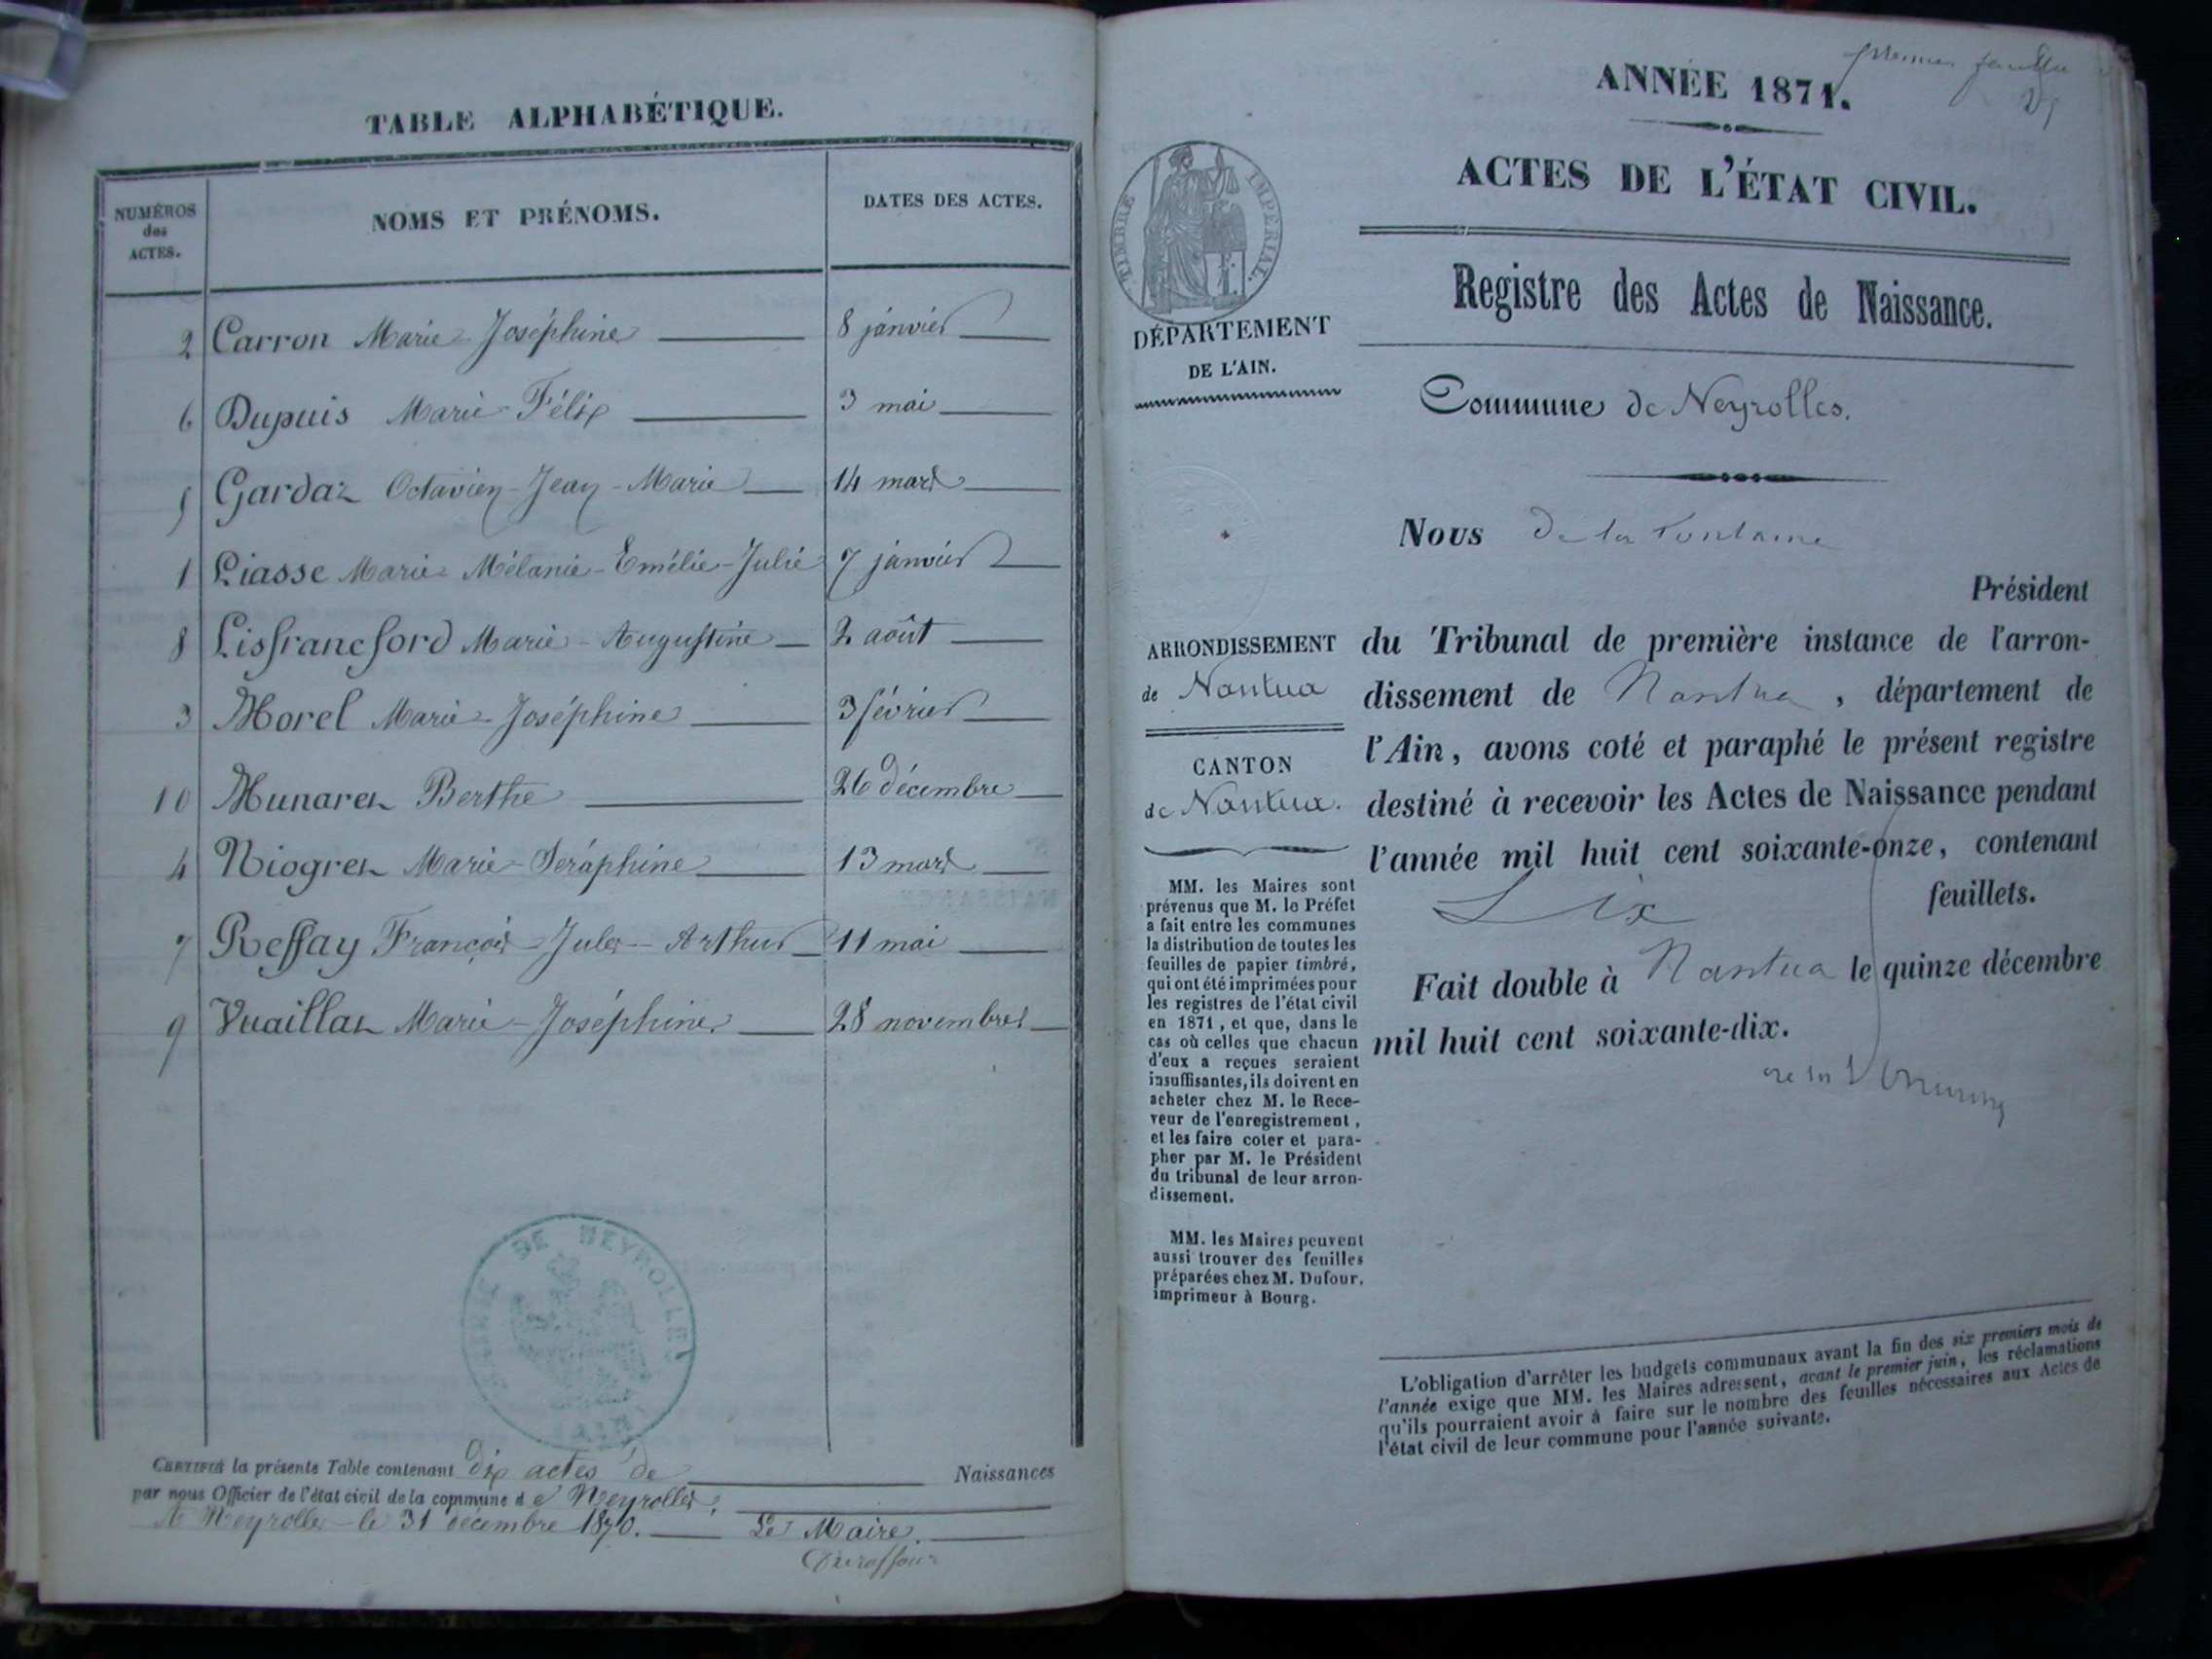 TABLE ALPHABÉTIQUE.
NUMÉROS des ACTES.
NOMS ET PRÉNOMS.
DATES DES ACTES.
2 Carron Marie-Joséphine 8 janvier
6 Dupuis Marie-Félix 3 mai
5 Gardaz Octavien-Jean-Marie 14 mars
1 Liasse Marie-Mélanie-Emélie-Julie 7 janvier
8 Lisfrancford Marie-Augustine 2 août
3 Morel Marie-Joséphine 3 février
10 Munaret Berthe 26 décembre
4 Niogret Marie-Séraphine 13 mars
7 Reffay François-Jules-Arthur 11 mai
9 Vuaillat Marie-Joséphine 28 novembre
MAIRIE DE NEYROLLES
(AIN)
CERTIFIÉ la présente Table contenant dix actes de Naissances
par nous Officier de l'état civil de la commune de Neyrolles,
A Neyrolles le 31 décembre 1870. Le Maire.
premier feuillet
ANNÉE 1871.
ACTES DE L'ÉTAT CIVIL.
TIMBRE IMPÉRIAL.
Registre des Actes de Naissance.
DÉPARTEMENT
DE L'AIN.
Commune de Neyrolles.
Nous De la Fontaine
Président
ARRONDISSEMENT
de Nantua
CANTON
de Nantua.
du Tribunal de première instance de l'arron-
dissement de Nantua, département de
l'Ain, avons coté et paraphé le présent registre
destiné à recevoir les Actes de Naissance pendant
l'année mil huit cent soixante-onze, contenant
Six feuillets.
Fait double à Nantua le quinze décembre
mil huit cent soixante-dix.
MM. les Maires sont
prévenus que M. le Préfet
a fait entre les communes
la distribution de toutes les
feuilles de papier timbré,
qui ont été imprimées pour
les registres de l'état civil
en 1871, et que, dans le
cas où celles que chacun
d'eux a reçues seraient
insuffisantes, ils doivent en
acheter chez M. le Rece-
veur de l'enregistrement,
et les faire coter et para-
pher par M. le Président
du tribunal de leur arron-
dissement.
MM. les Maires peuvent
aussi trouver des feuilles
préparées chez M. Dufour,
imprimeur à Bourg.
L'obligation d'arrêter les budgets communaux avant la fin des six premiers mois de
l'année exige que MM. les Maires adressent, avant le premier juin, les réclamations
qu'ils pourraient avoir à faire sur le nombre des feuilles nécessaires aux Actes de
l'état civil de leur commune pour l'année suivante.